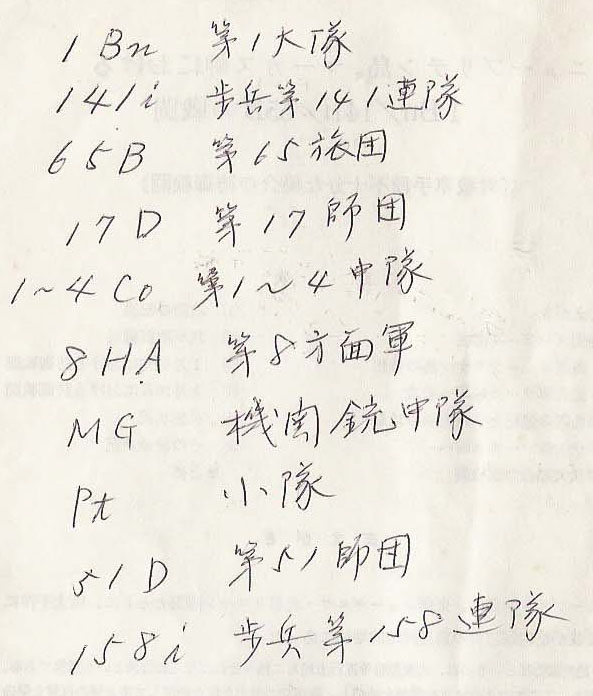 1 Bn 第1大隊
141i 歩兵第141連隊
65B 第65旅団
17D 第17師団
1~4 Co 第1~4中隊
8HA 第8方面軍
MG 機関銃中隊
Pt 小隊
51D 第51師団
158i 歩兵第158連隊